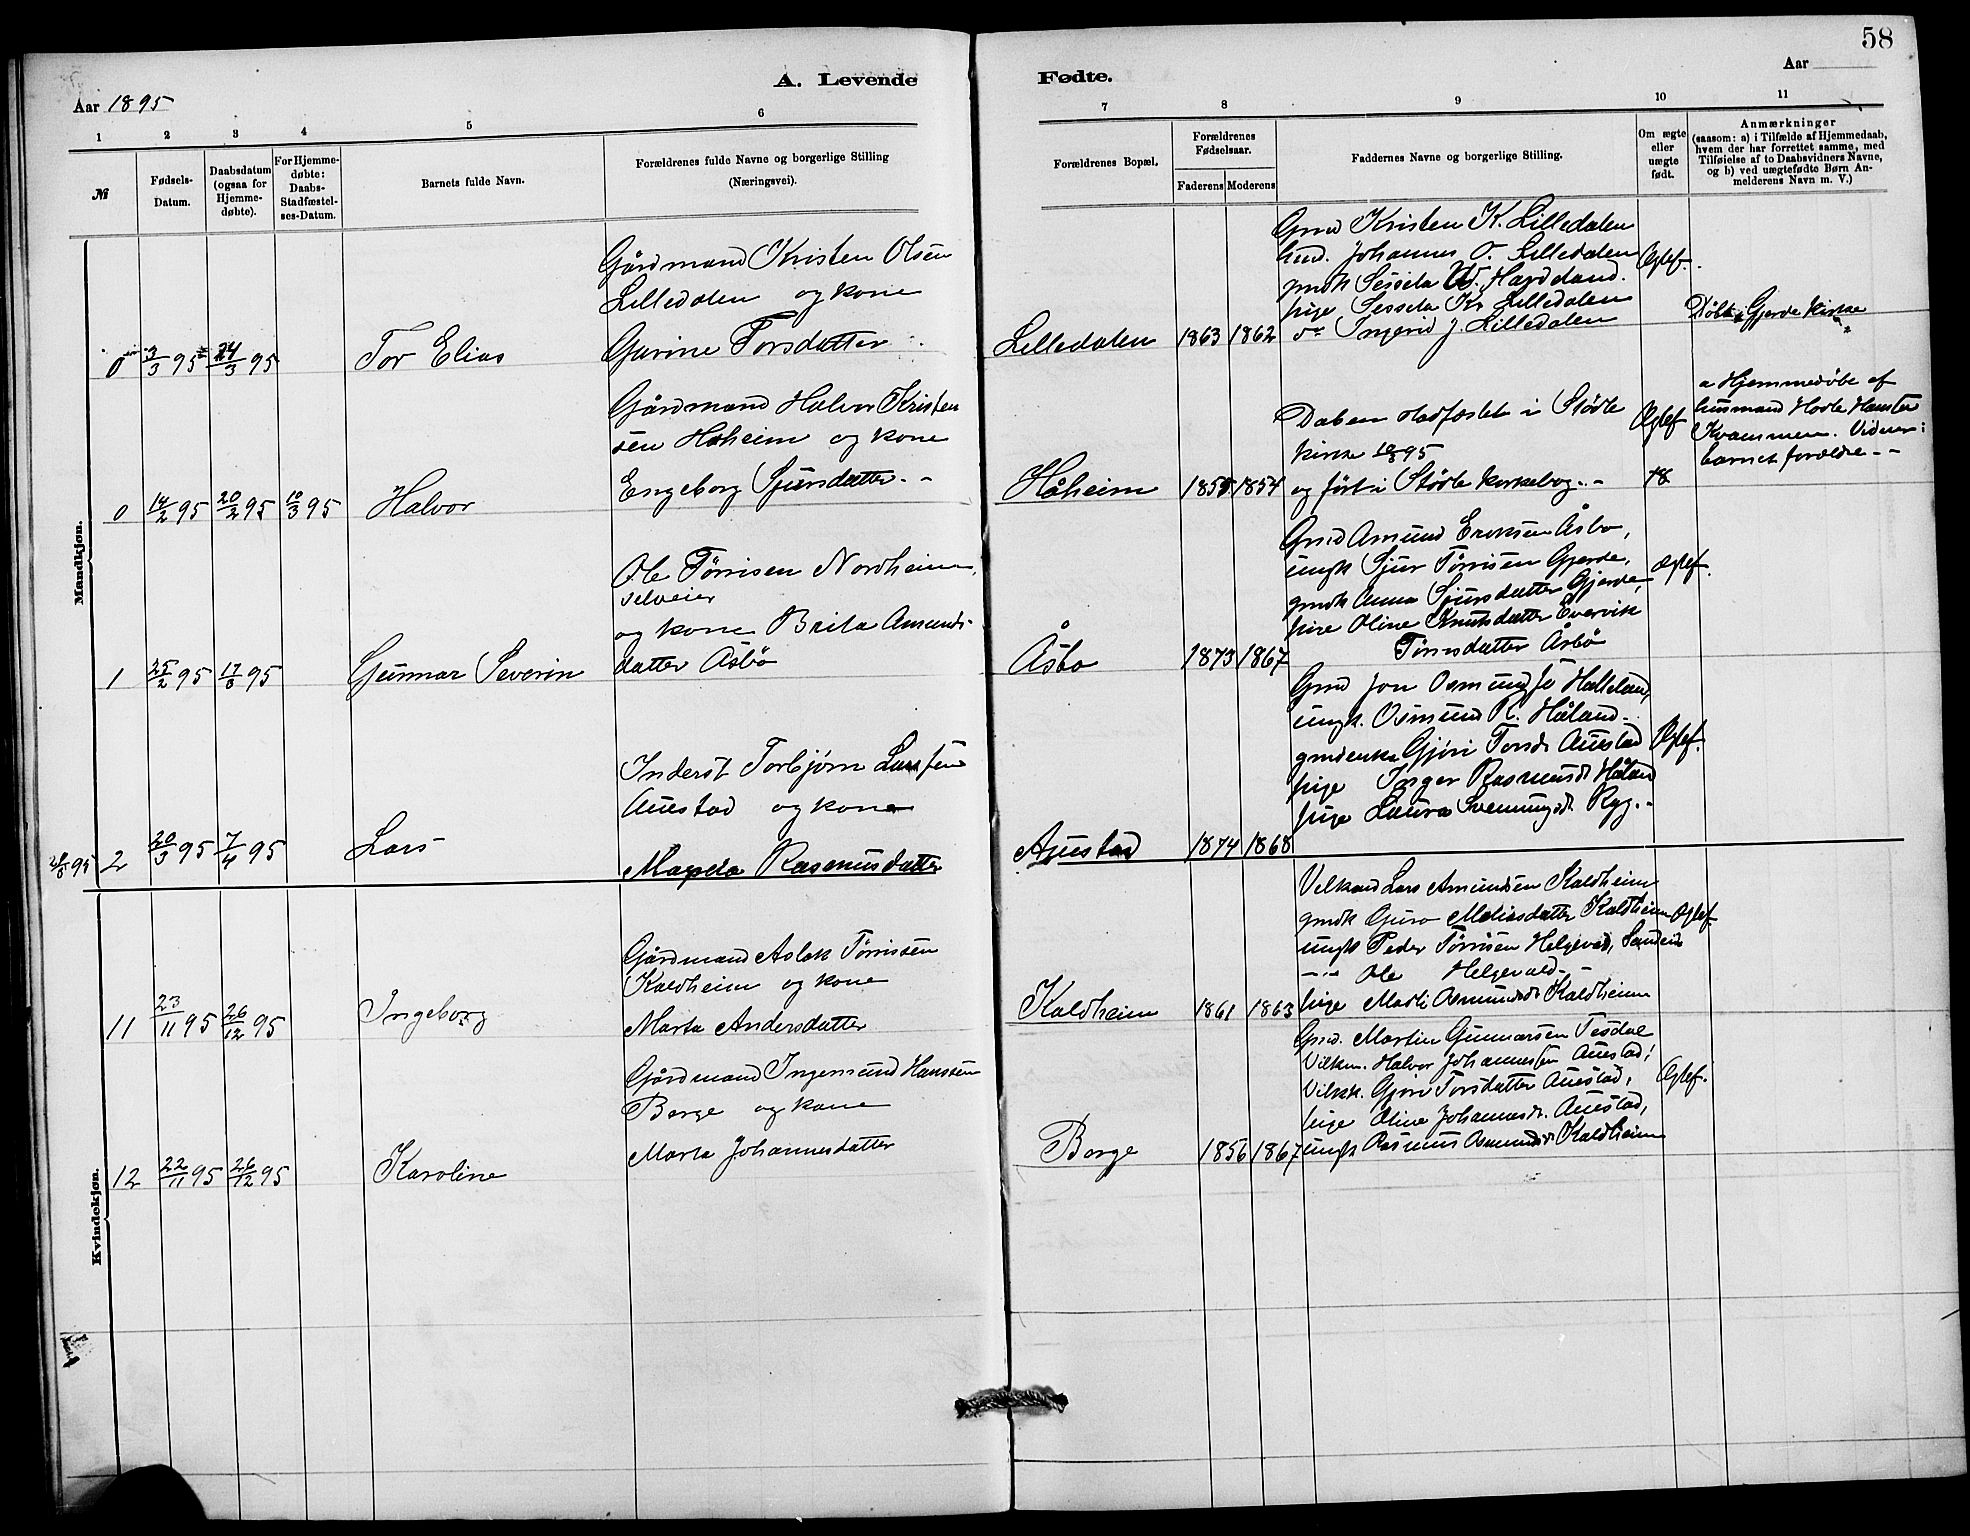 58
A. Levende
Fødte.
Aar 1895
Aar
1 2 3 4 5 6 7 8 9 10 11
№
Fødsels-
Datum.
Daabsdatum
(ogsaa for
Hjemme-
døbte).
For Hjemme-
døbte:
Daabs-
Stadfæstel-
ses-Datum.
Barnets fulde Navn.
Forældrenes fulde Navne og borgerlige Stilling
(Næringsvei).
Forældrenes Bopæl.
Forældrenes
Fødselsaar.
Faderens Moderens
Faddernes Navne og borgerlige Stilling.
Om ægte
eller
uægte
født.
Anmærkninger
(saasom: a) i Tilfælde af Hjemmedaab,
hvem der har forrettet samme, med
Tilføielse af to Daabsvidners Navne,
og b) ved uægtefødte Børn An-
melderens Navn m. V.)
Mandkjøn.
0 3/3 95 24/3 95
Tor Elias
Gårdmand Kristen Olsen
Lilledalen og kone
Gurine Torsdatter
Lilledalen 1863 1862
Gmd Kristen K. Lilledalen
hmd. Johannes O. Lilledalen
gmdk Sesselia
pige Sesselia Kr Lilledalen
Ingerid J. Lilledalen
Ægtef.
Døbt i Gjerde Kirke
0 14/2 95 20/2 95 10/3 95
Halvor
Gårdmand Halvor Kristen
sen Håheim og kone
Engeborg Sjursdatter
Håheim 1855 1854
Daben stadfæstet i Stødle
kirke 10/3 95
og ført i Stødle kirkebog
Ægtef
a Hjemmedøbt af
husmand
Kvammen. Vidner:
barnets forældre
1 25/2 95 17/3 95
Gunnar Severin
Ole Tørrisen Nordheim,
selveier
og kone Brita Amunds-
datter Åsbø
Åsbo 1873 1867
Gmd Amund Eriksen Åsbo,
ungk Sjur Tørrisen Gjerde,
gmdk Anna Sjursdatter Gjerde,
pige Oline Knutsdatter
Tørrisdatter Åsbø
Ægtef.
2 20/3 95 7/4 95
Lars
Inderst Torbjørn Larssen
Auestad og kone
Magda Rasmusdatter
Auestad 1874 1868
Gmd Jon Osmundse
ungk. Osmund R. Håland
gmdenke Gjøri Torsdr Auestad
pige Inger Rasmusdr Håland
pige Laura Svenningsdr. Ryg.
Ægtef.
Kvindekjøn.
11 23/11 95 26/12 95
Ingeborg
Gårdmand Aslak Tørrissen
Kaldheim og kone
Marta Andersdatter
Kaldheim 1861 1863
Lars Amundsen Kaldheim
gmdk Guro Matiasdatter Kaldheim
ungk Peder Tørrisen
Ole
pige Marli Asmundsdr Kaldheim
Ægtef.
12 22/11 95 26/12 95
Karoline
Gårdmand Ingemund Hanssen
Borge og kone
Marta Johannesdatter
Borge 1856 1867
Gmd. Martin Gunnarsen Tesdal
Vilkm. Halvor Johannessen Auestad,
Vilksk. Gjøri Torsdatter Auestad,
pige Oline Johannesdr. Auestad,
ungk Rasmus Kaldheim
Ægtef.